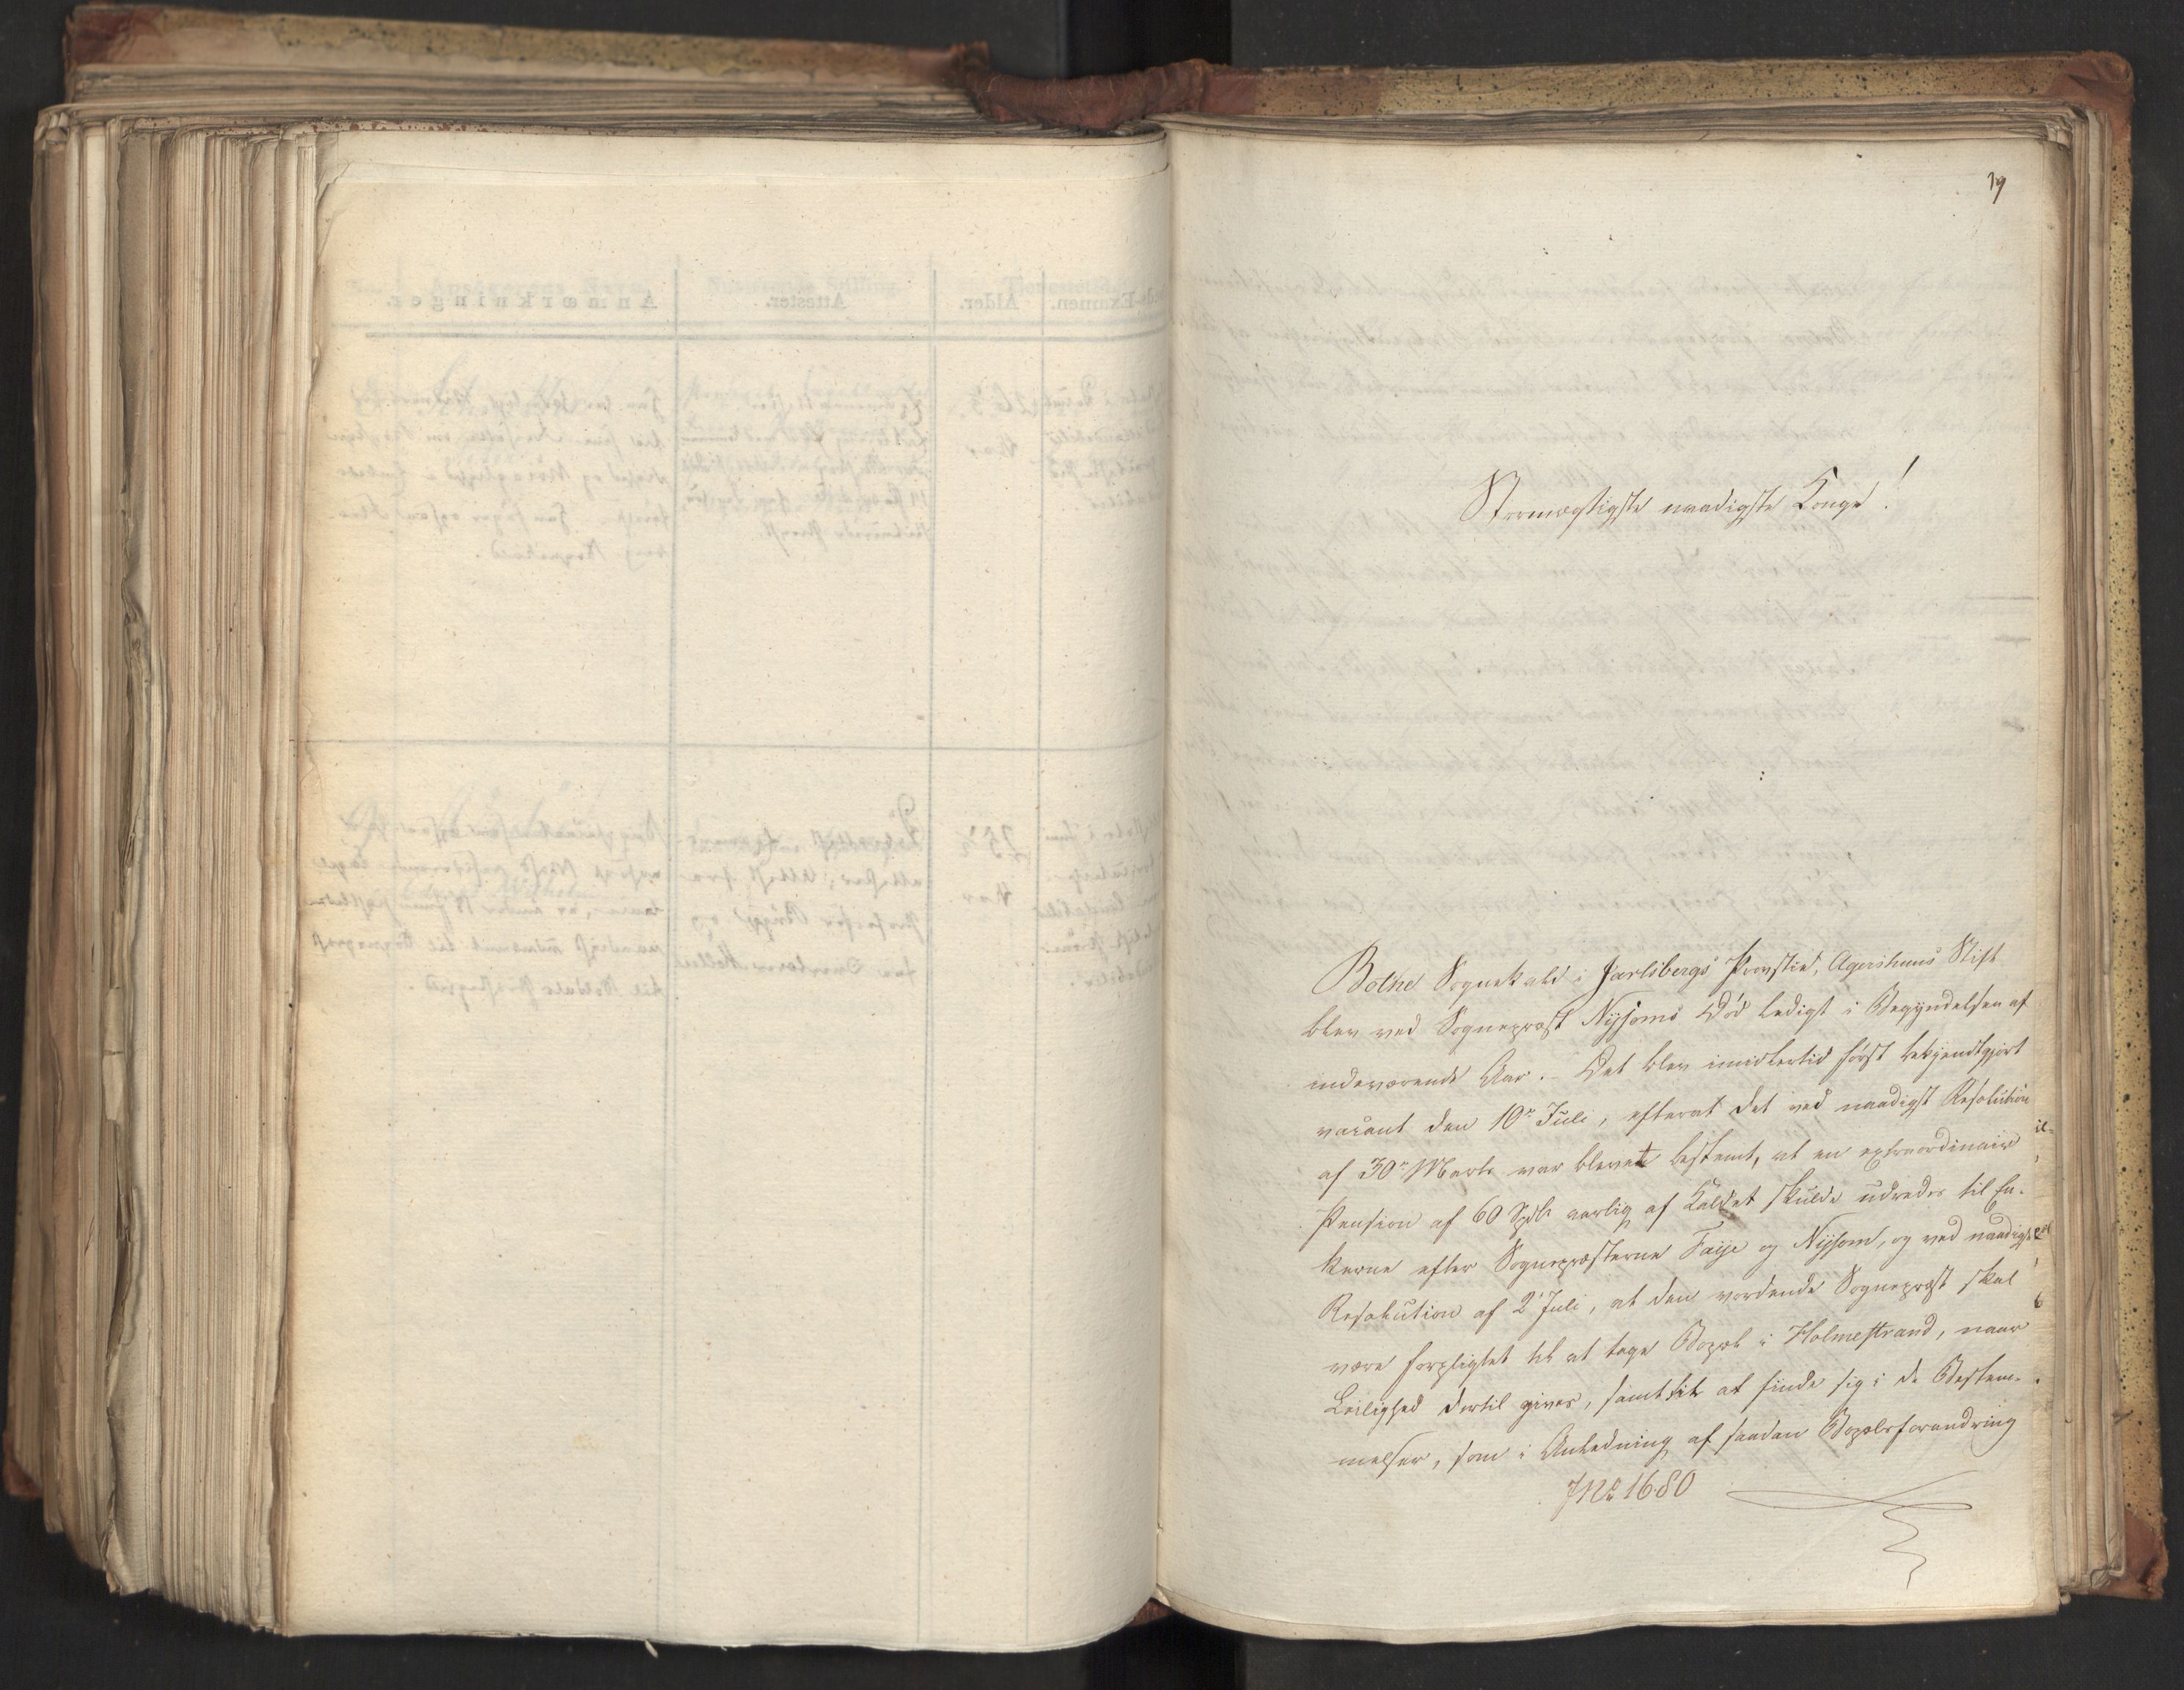 19
Stormægtigste naadigste Konge!
Bothe Sognekald i Jarlsbergs Provstie, Agershuus Stift
blev ved Sognepræst Nysoms Død ledigt i Begyndelsen af
indeværende Aar. Det blev imidlertid først bekjendtgjort
vacant den 10n Juli, efterat det ved naadigst Resolution
af 30n Marts var blevet bestemt, at en extraordinair
Pension af 60 Spdlr aarlig af Kaldet skulde udredes til En-
kerne efter Sognepræsterne Faye og Nysom, og ved naadigst
Resolution af 2n Juli, at den vordende Sognepræst skal
være forpligtet til at tage Bopæl i Holmestrand, naar
Leilighed dertil gives, samt til at finde sig i de Bestem-
melser, som i Anledning af saadan Bopælsforandring
JNo 1680